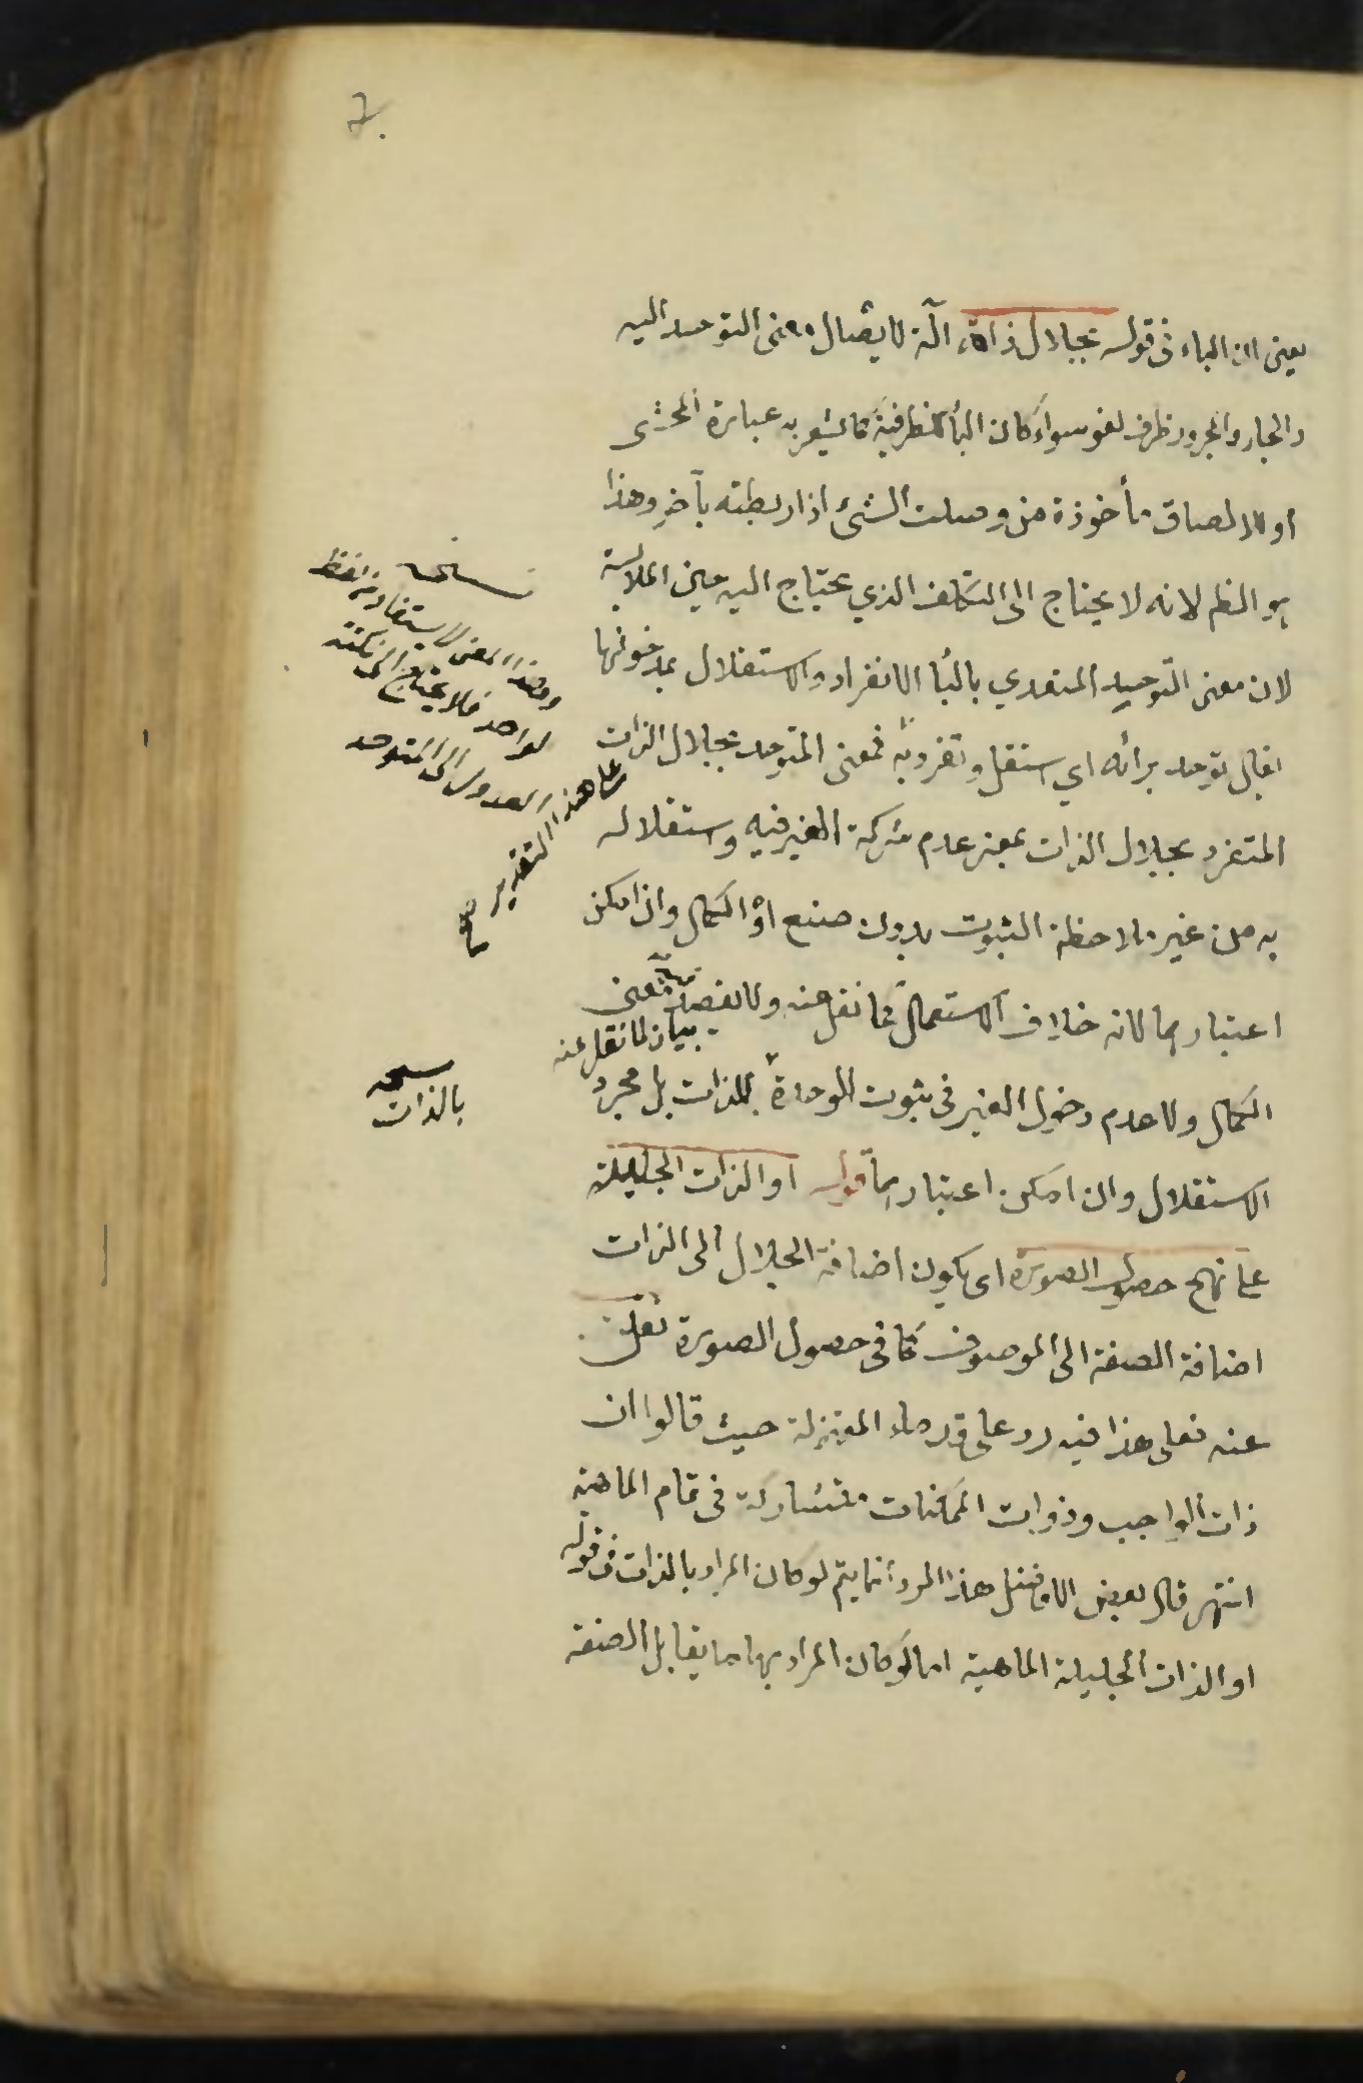 يعنى ان الباء فى قوله بجلال ذاته آلة لايصال معنى التوحد اليه
والجار والمجرور ظرف لغو سواء كان الباء للظرفية كما يشعر به عبارة المحشى
أو للالصاق مأخوذة من وصلت الشئ اذا ربطته بآخر وهذا
هو الظم لانه لا يحتاج الى التكلف الذي يحتاج اليه حين الملابسة
لان معنى التوحيد المتعدي بالباء الانفراد والاستقلال بمدخولها
يقال توحد برأيه اي استقل وتفرد به فمعنى المتوحد بجلال الذات
المتفرد بجلال الذات بمعنى عدم شركة الغير فيه واستقلاله
به من غير ملاحظة الثبوت بدون صنع او الكمال وان امكن
اعتبارهما لانه خلاف الاستعمال كما نقل عنه ولا يقصد معنى
بيان لما نقل عنه
الكمال ولا عدم دخول الغير فى ثبوت الوحدة للذات بل مجرد
الاستقلال وان امكن اعتبارهما قوله او الذات الجليلة
على نهج حصول الصورة اى يكون اضافة الجلال الى الذات
اضافة الصفة الى الموصوف كما فى حصول الصورة نقل
عنه فعلى هذا فيه رد على قدماء المعتزلة حيث قالوا ان
ذات الواجب وذوات الممكنات متشاركة فى تمام الماهية
انتهى قال بعض الافاضل هذا الرد انما يتم لو كان المراد بالذات فى قوله
او الذات الجليلة الماهية اما لو كان المراد بها ما يقابل الصفة
نسخه
وهذا المعنى لا يستفاد من لفظ
الواحد فلا يحتاج الى نكتة
العدول الى المتوحد
على هذا التقدير صح
نسخه
بالذات